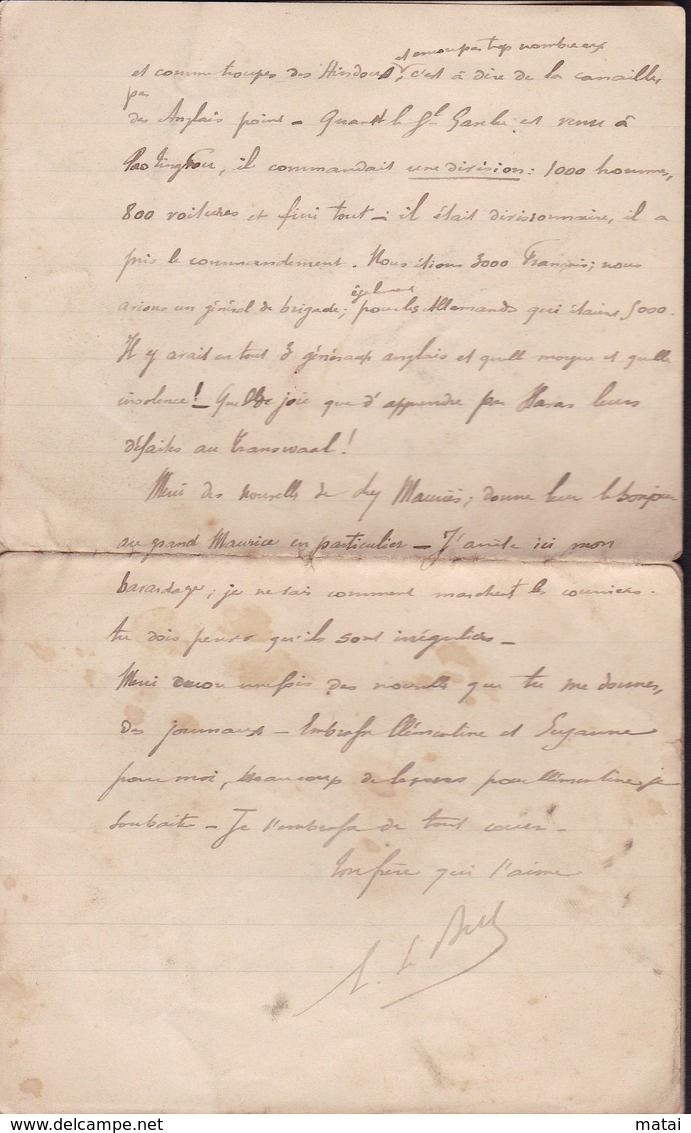 et encore pas trop nombreux
et comme troupes des Hindous, c'est à dire de la canaille,
pas
des Anglais point - Quand le Gl Gaselee est venu à
Paotingfou, il commandait une division : 1000 hommes,
800 voitures et fini tout - il était divisionnaire, il a
pris le commandement. Nous étions 3000 Français; nous
également
avions un général de brigade; pour les Allemands qui étaient 5000.
Il y avait en tout 3 généraux anglais et quelle morgue et quelle
insolence ! - Quelle joie que d'apprendre par Havas leurs
défaites au Transwaal !
Merci des nouvelles de Maurice; donne leur le bonjour
au grand Maurice en particulier - J'arrête ici mon
bavardage; je ne sais comment marchent les courriers.
tu dois penser qu'ils sont irréguliers -
Merci encore une fois des nouvelles que tu me donnes,
des journaux - Embrasse Clémentine et Suzanne
pour moi, beaucoup de pour Clémentine je
souhaite - Je t'embrasse de tout coeur -
Ton frère qui t'aime